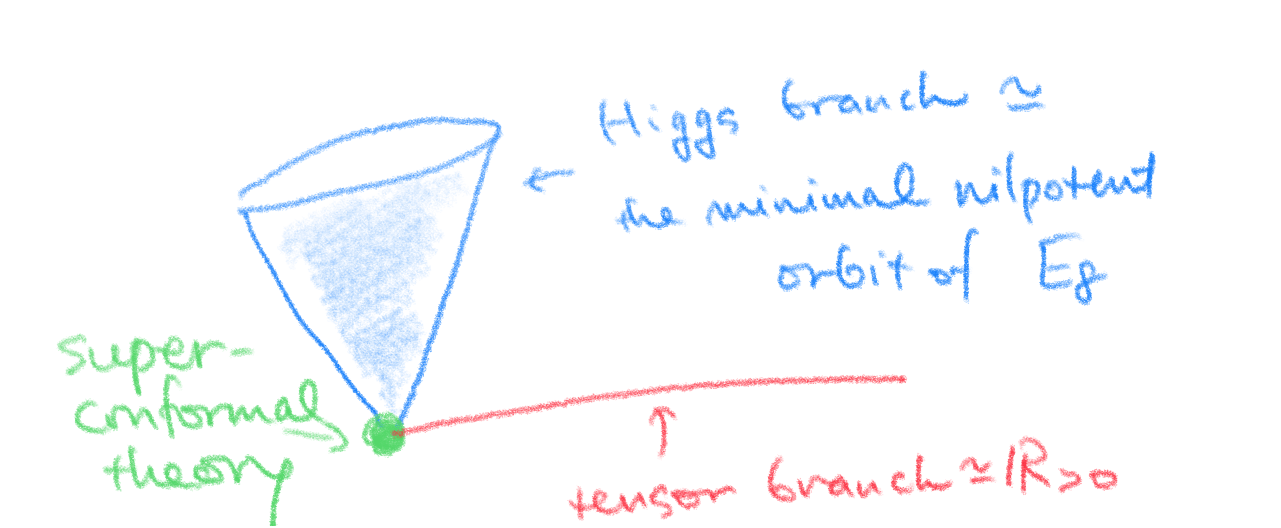 Higgs branch ≃
the minimal nilpotent
orbit of E₈
super-
conformal
theory
tensor branch ≃ ℝ>0